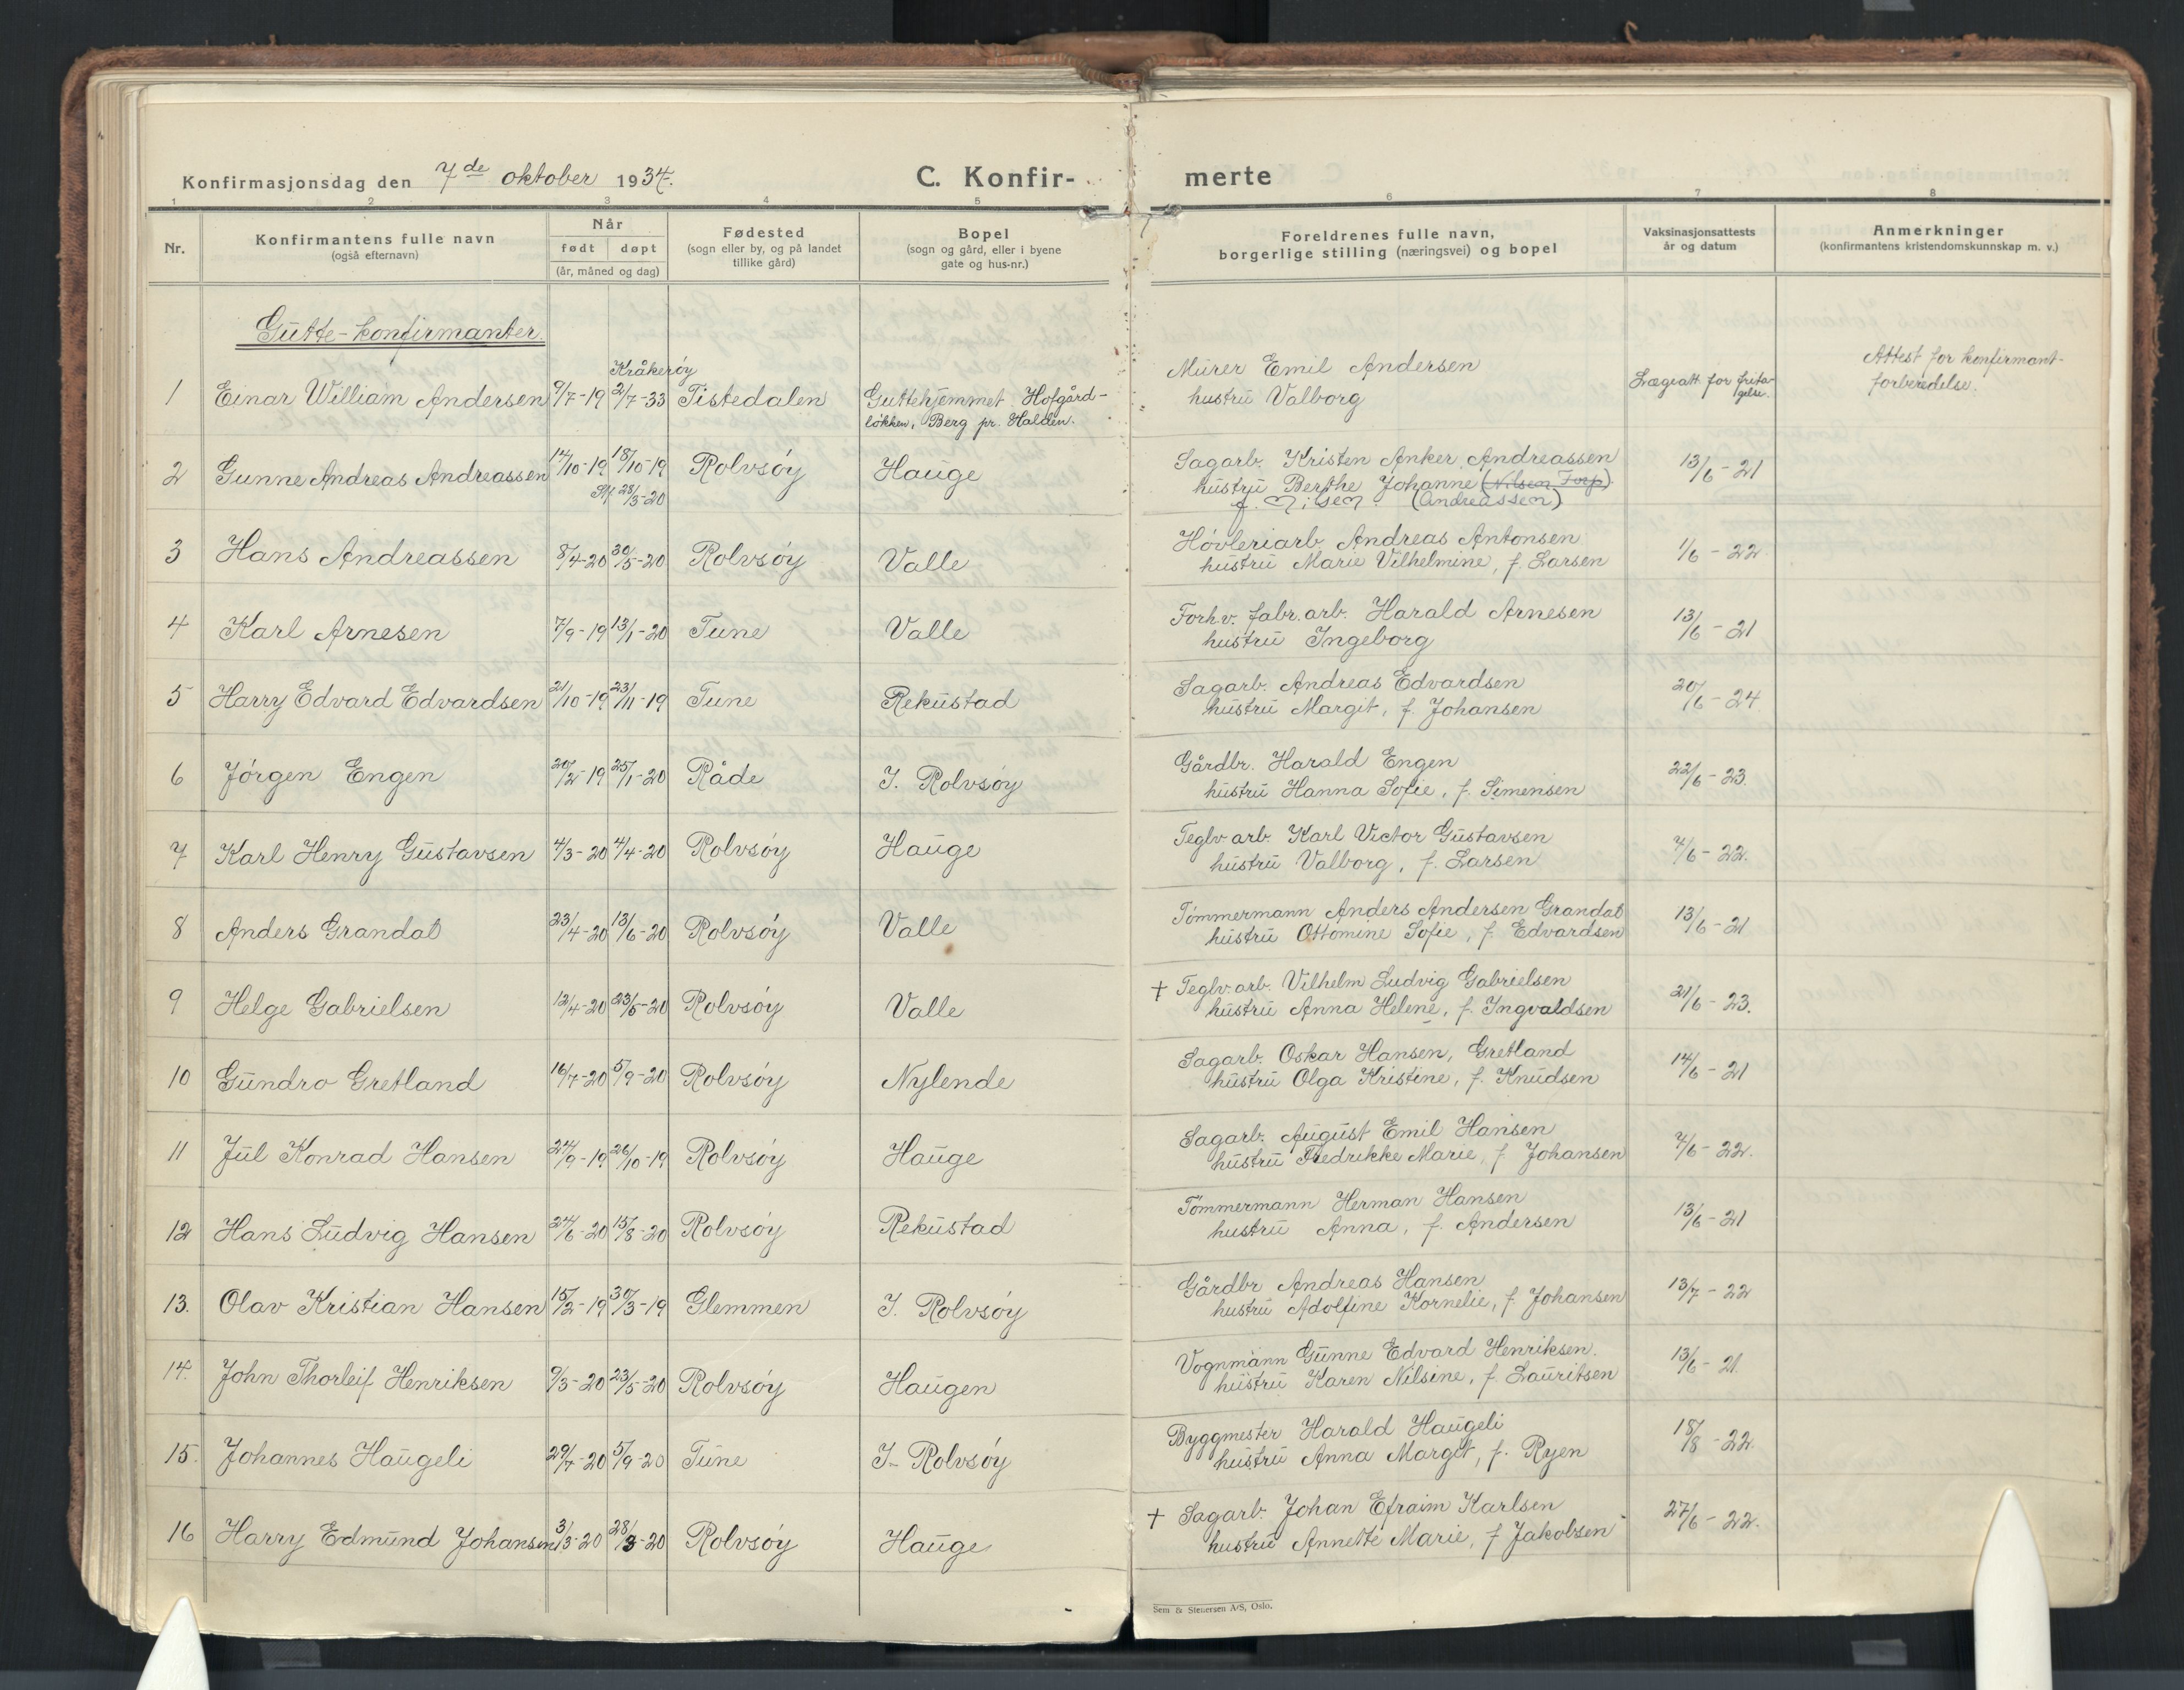 Konfirmasjonsdag den 7de oktober 1934. C. Konfir- merte
1 2 3 4 5 6 7 8
Nr. Konfirmantens fulle navn (også efternavn) Når født døpt (år, måned og dag) Fødested (sogn eller by, og på landet tillike gård) Bopel (sogn og gård, eller i byene gate og hus-nr.) Foreldrenes fulle navn, borgerlige stilling (næringsvei) og bopel Vaksinasjonsattests år og datum Anmerkninger (konfirmantens kristendomskunnskap m. v.)
Gutte-konfirmanter.
Kråkerøy
1 Einar William Andersen 9/7-19 2/7-33 Tistedalen Guttehjemmet Hofgård-
løkken, Berg pr. Halden.
Murer Emil Andersen
hustru Valborg
Lægeatt. for frita-
gelse.
Attest for konfirmant-
forberedelse.
2 Gunne Andreas Andreassen 14/10-19 18/10-19 Rolvsøy Hauge
28/3-20
Sagarb. Kristen Anker Andreassen 13/6-21
hustru Berthe Johanne (Nilsen Torp)
f. Nilsen (Andreassen)
3 Hans Andreassen 8/4-20 30/5-20 Rolvsøy Valle
Høvleriarb. Andreas Antonsen 1/6-22
hustru Marie Vilhelmine, f. Larsen
4 Karl Arnesen 7/9-19 13/1-20 Tune Valle
Forhv. fabr.arb. Harald Arnesen 13/6-21
hustru Ingeborg
5 Harry Edvard Edvardsen 21/10-19 23/11-19 Tune Rekustad
Sagarb. Andreas Edvardsen 20/6-24
hustru Margit, f. Johansen
6 Jørgen Engen 20/2-19 25/1-20 Råde I. Rolvsøy
Gårdbr. Harald Engen 22/6-23.
hustru Hanna Sofie, f. Simensen
7 Karl Henry Gustavsen 4/3-20 4/4-20 Rolvsøy Hauge
Teglv.arb. Karl Victor Gustavsen 7/6-22.
hustru Valborg, f. Larsen
8 Anders Grandal 23/4-20 13/6-20 Rolvsøy Valle
Tømmermann Anders Andersen Grandal 13/6-21
hustru Ottomine Sofie, f. Edvardsen
9 Helge Gabrielsen 12/4-20 23/5-20 Rolvsøy Valle
† Teglv.arb. Vilhelm Ludvig Gabrielsen 21/6-23.
hustru Anna Helene, f. Ingvaldsen
10 Gundro Gretland 16/7-20 5/9-20 Rolvsøy Nylende
Sagarb. Oskar Hansen, Gretland 14/6-21
hustru Olga Kristine, f. Knudsen
11 Jul Konrad Hansen 24/9-19 26/10-19 Rolvsøy Hauge
Sagarb. August Emil Hansen 7/6-22.
hustru Fredrikke Marie, f. Johansen
12 Hans Ludvig Hansen 24/6-20 15/8-20 Rolvsøy Rekustad
Tømmermann Herman Hansen 13/6-21
hustru Anna, f. Andersen
13. Olav Kristian Hansen 15/2-19 30/3-19 Glemmen I. Rolvsøy
Gårdbr Andreas Hansen 13/7-22
hustru Adolfine Kornelie, f. Johansen
14. John Thorleif Henriksen 9/3-20 23/5-20 Rolvsøy Haugen
Vognmann Gunne Edvard Henriksen. 13/6-21.
hustru Karen Nilsine, f. Lauritsen
15. Johannes Haugeli 29/7-20 5/9-20 Tune I. Rolvsøy
Byggmester Harald Haugeli 18/8-22.
hustru Anna Margit, f. Ryen
16 Harry Edmund Johansen 3/3-20 28/3-20 Rolvsøy Hauge
† Sagarb. Johan Efraim Karlsen 27/6-22.
hustru Annette Marie, f. Jakobsen
Sem & Stenersen A/S, Oslo.